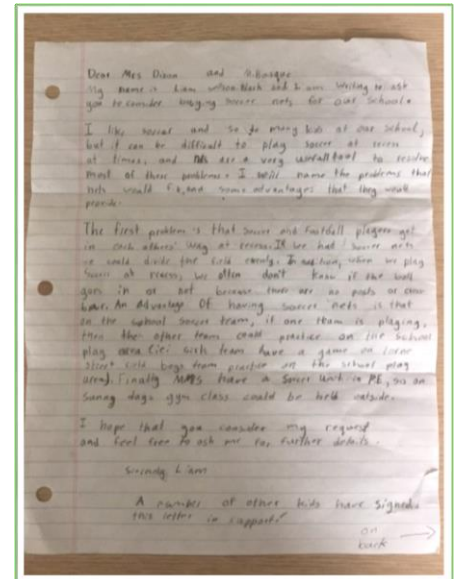 Dear Mrs Dixon and
My name is Liam and I am writing to ask
you to consider buying soccer nets for our school.
I like soccer and so do many kids at our school,
but it can be difficult to play soccer at recess
at times, and are a very tool to resolve
most of these problems. I will name the problems that
nets would fix, and some advantages that they would
provide.
The first problem is that soccer and football players get
in each others' way at recess. If we had soccer nets
we could divide the field evenly. In addition, when we play
soccer at recess, we often don't know if the ball
goes in or not because there are no posts or cross
bar. An advantage Of having soccer nets is that
on the school soccer team, if one team is playing,
then the other team could practice on the school
play area (ie: girls team have a game on
street could boys team practice on the school play
area). Finally have a Soccer Unit in PE, so on
sunny days gym class could be held outside.
I hope that you consider my request
and feel free to ask me for further details.
Liam
A number of other kids have signed
this letter in support!
on
back